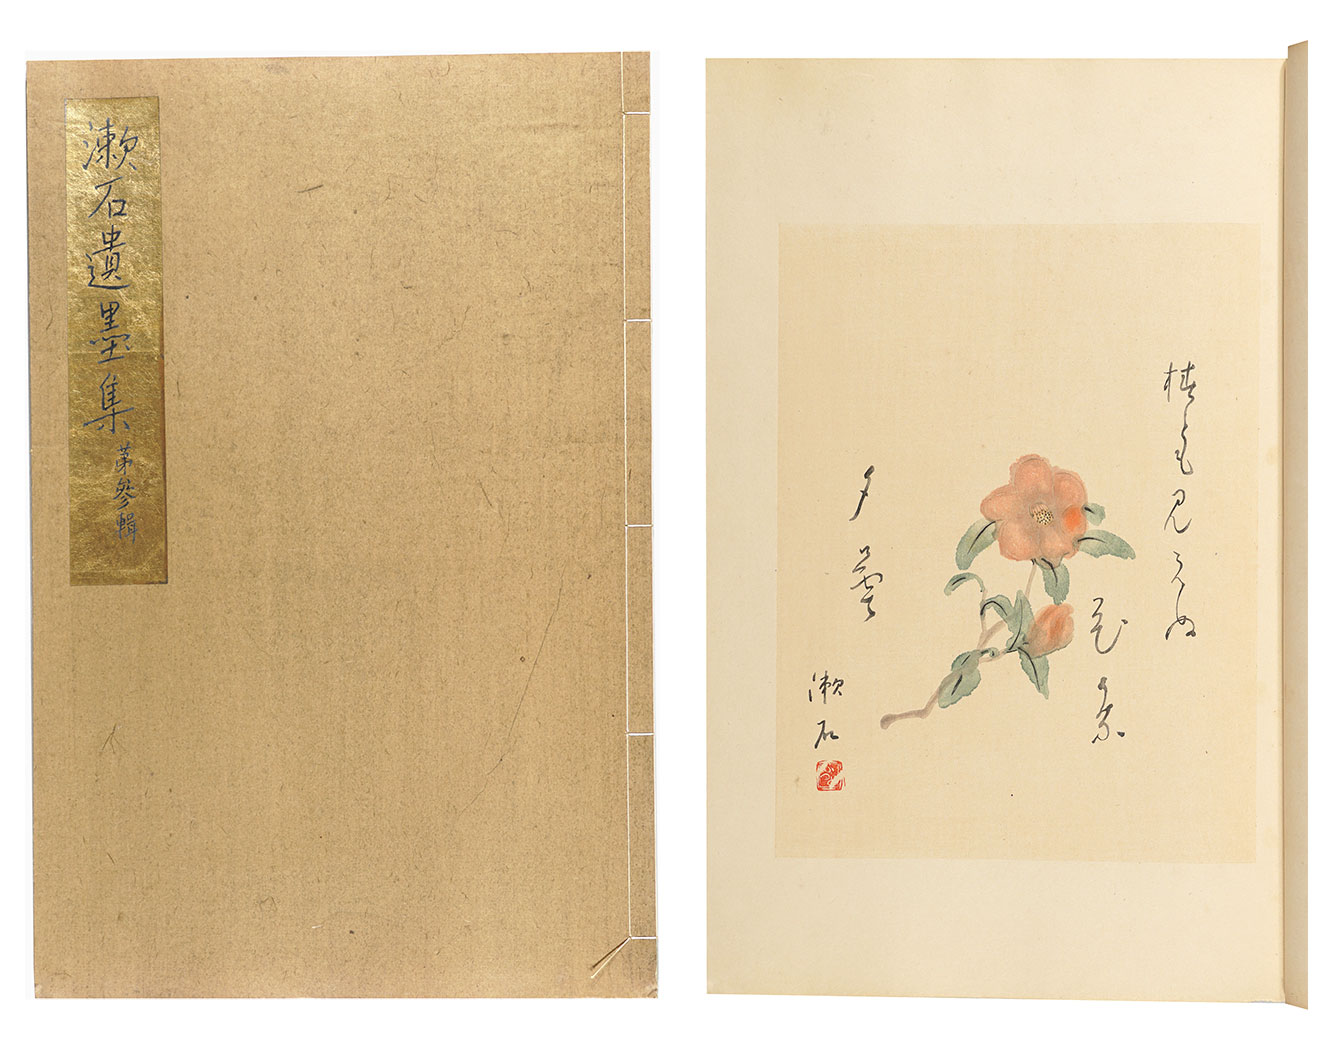 漱石遺墨集 第參輯
椿とも見えぬ
花かな
夕曇
漱石